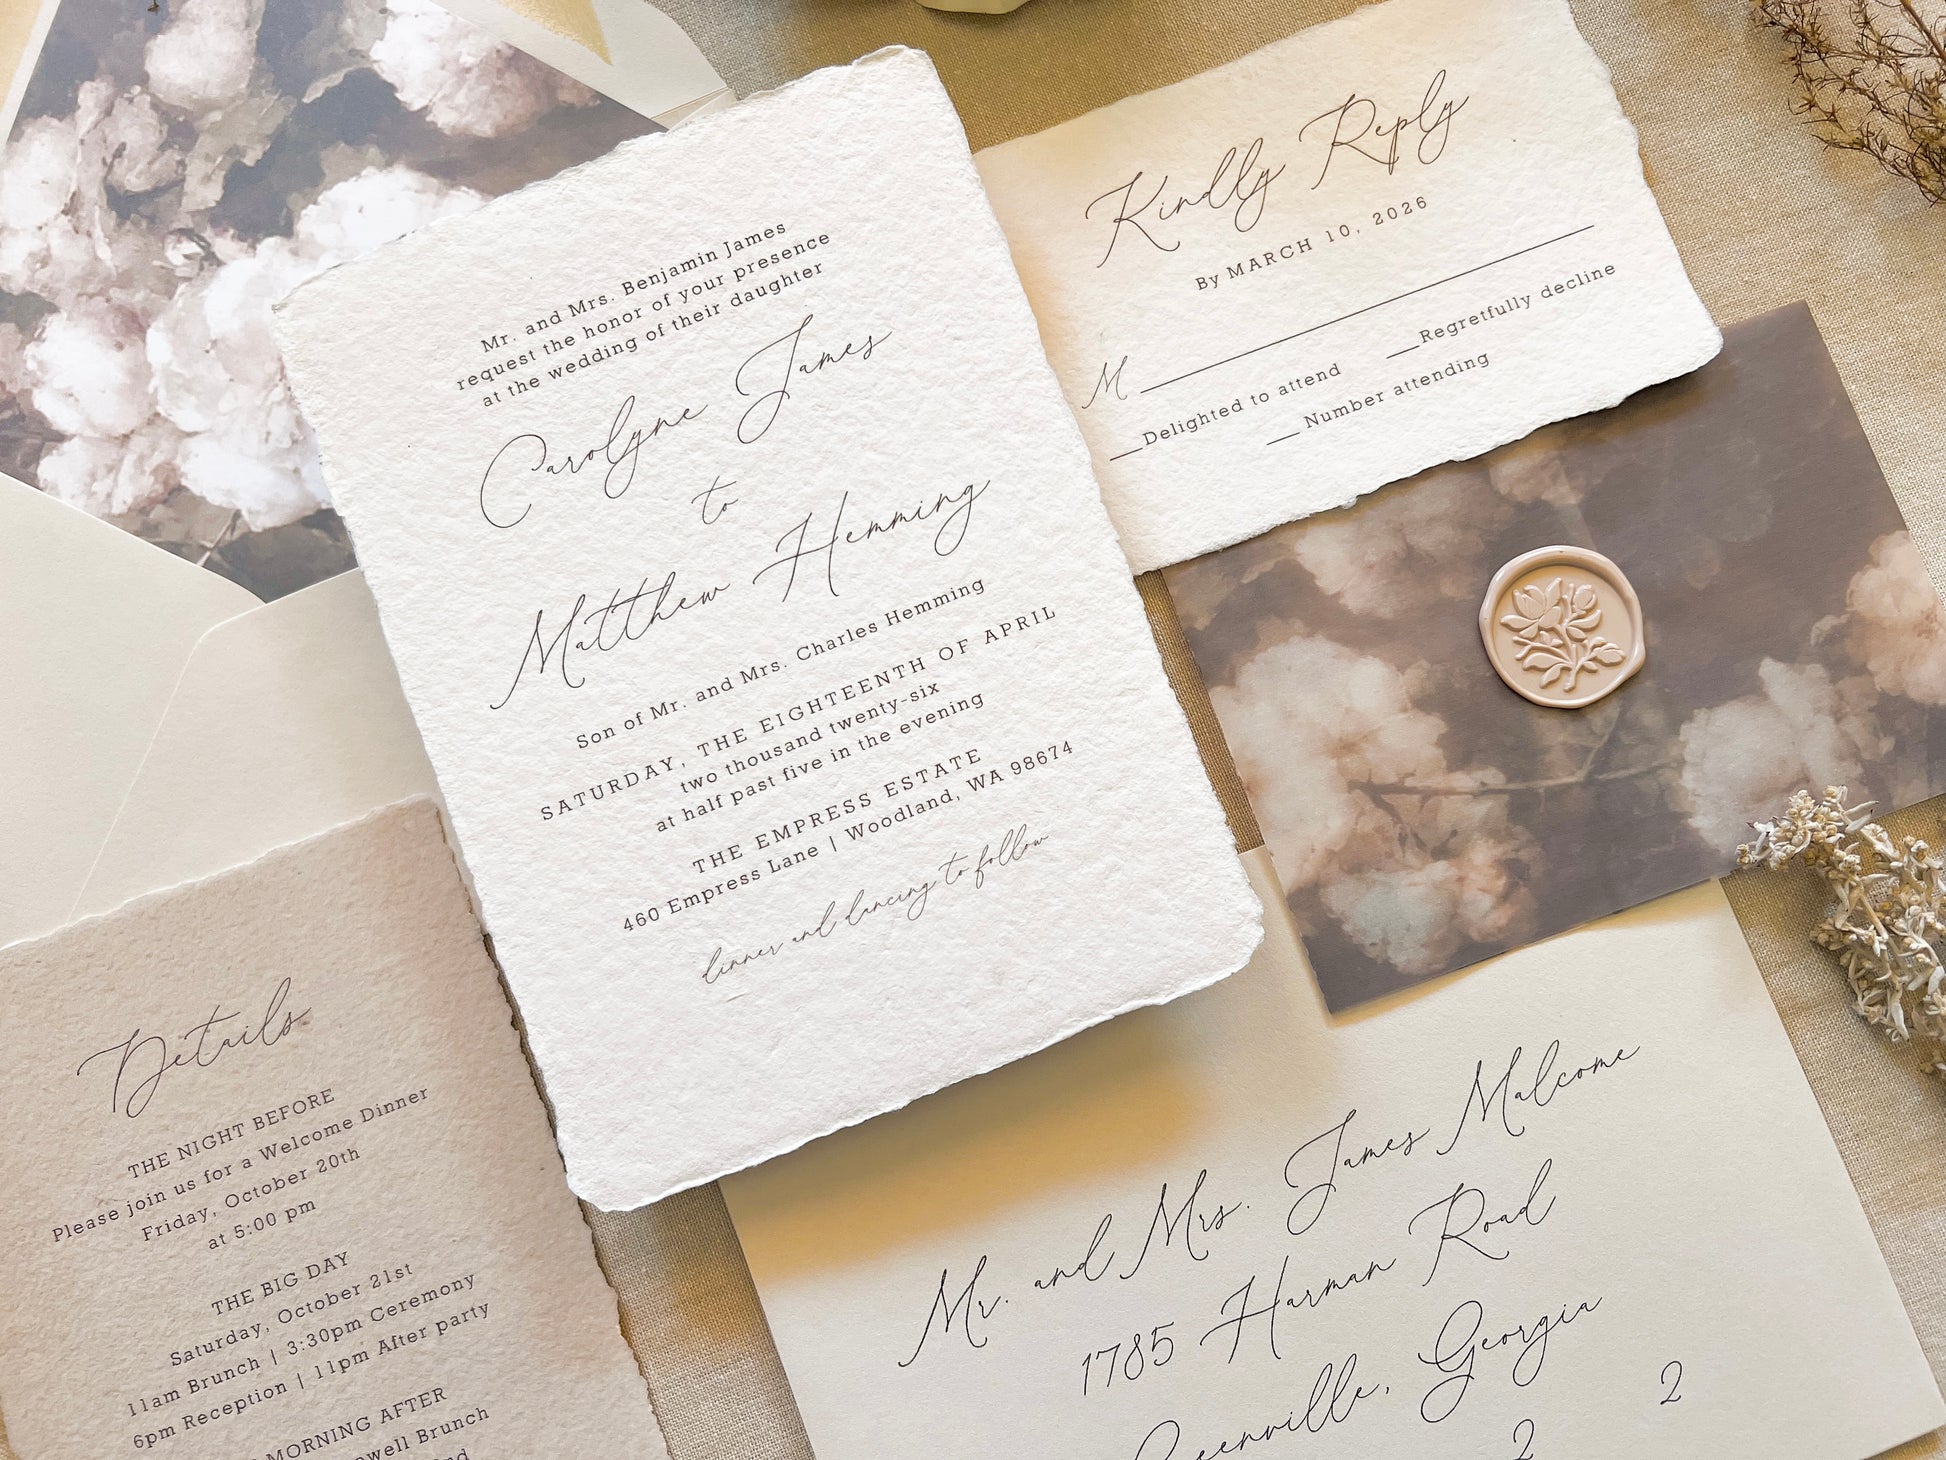 Mr. and Mrs. Benjamin James
request the honor of your presence
at the wedding of their daughter
Carolyne James
to
Matthew Hemming
Son of Mr. and Mrs. Charles Hemming
SATURDAY, THE EIGHTEENTH OF APRIL
two thousand twenty-six
at half past five in the evening
THE EMPRESS ESTATE
460 Empress Lane | Woodland, WA 98674
dinner and dancing to follow
Kindly Reply
By MARCH 10, 2026
M
__Delighted to attend __Regretfully decline
__ Number attending
Details
THE NIGHT BEFORE
Please join us for a Welcome Dinner
Friday, October 20th
at 5:00 pm
THE BIG DAY
Saturday, October 21st
11am Brunch | 3:30pm Ceremony
6pm Reception | 11pm After party
MORNING AFTER
Brunch
Mr. and Mrs. James Malcome
1785 Harman Road
Greenville, Georgia
2 2